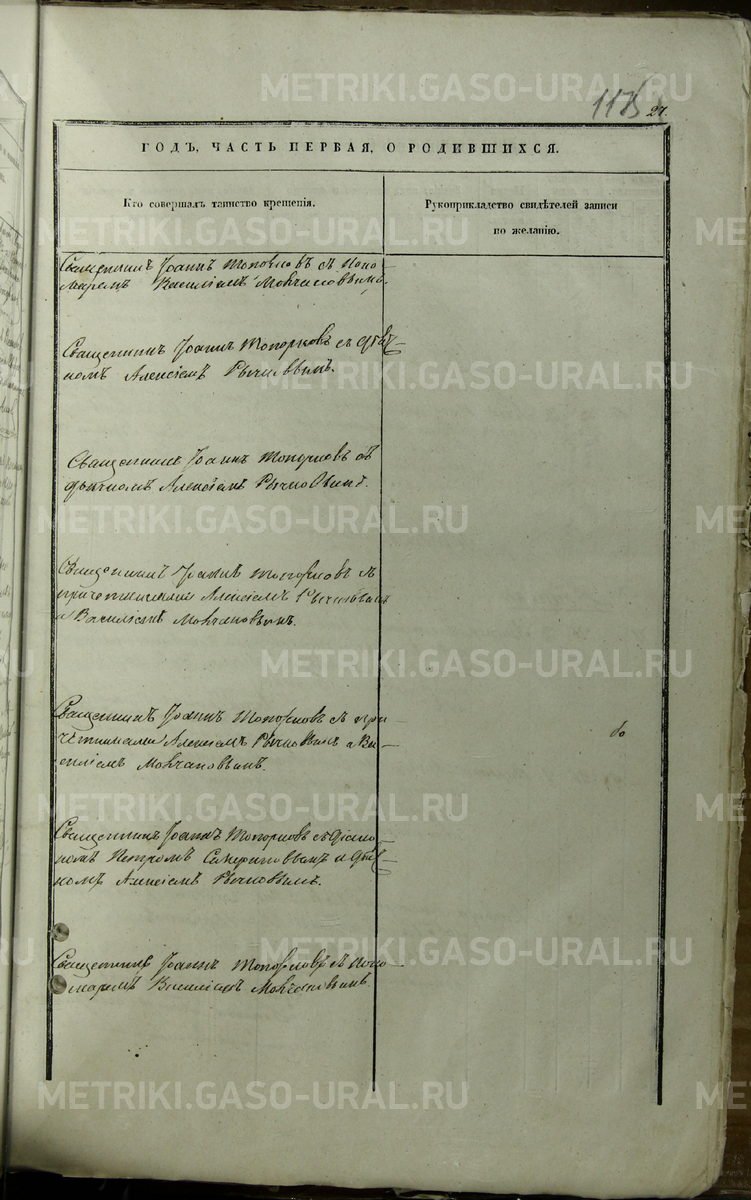 1175
27.
ГОДЪ, ЧАСТЬ ПЕРВАЯ, О РОДИВШИХСЯ.
Кто совершалъ таинство крещенія.
Рукоприкладство свидѣтелей записи
по желанію.
Священникъ Іоаннъ Топорковъ съ Поно-
маремъ Василіемъ Молчановымъ.
Священникъ Іоаннъ Топорковъ съ дьяч-
комъ Алексіемъ Рычковымъ.
Священникъ Іоаннъ Топорковъ съ
дьячкомъ Алексіемъ Рычковымъ.
Священникъ Іоаннъ Топорковъ съ
причетниками Алексіемъ Рычковымъ
и Василіемъ Молчановымъ.
Священникъ Іоаннъ Топорковъ съ при-
четниками Алексіемъ Рычковымъ и Ва-
силіемъ Молчановымъ.
Священникъ Іоаннъ Топорковъ съ діако-
номъ Петромъ и дьяч-
комъ Алексіемъ Рычковымъ.
Священникъ Іоаннъ Топорковъ съ поно-
маремъ Василіемъ Молчановымъ
METRIKI.GASO-URAL.RU